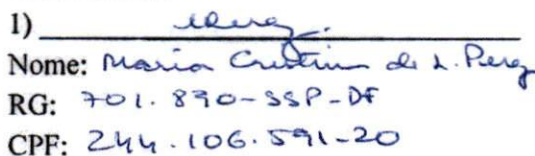 1)
Nome: Maria Cristina de L. Perez
RG: 701.890-SSP-DF
CPF: 244.106.591-20